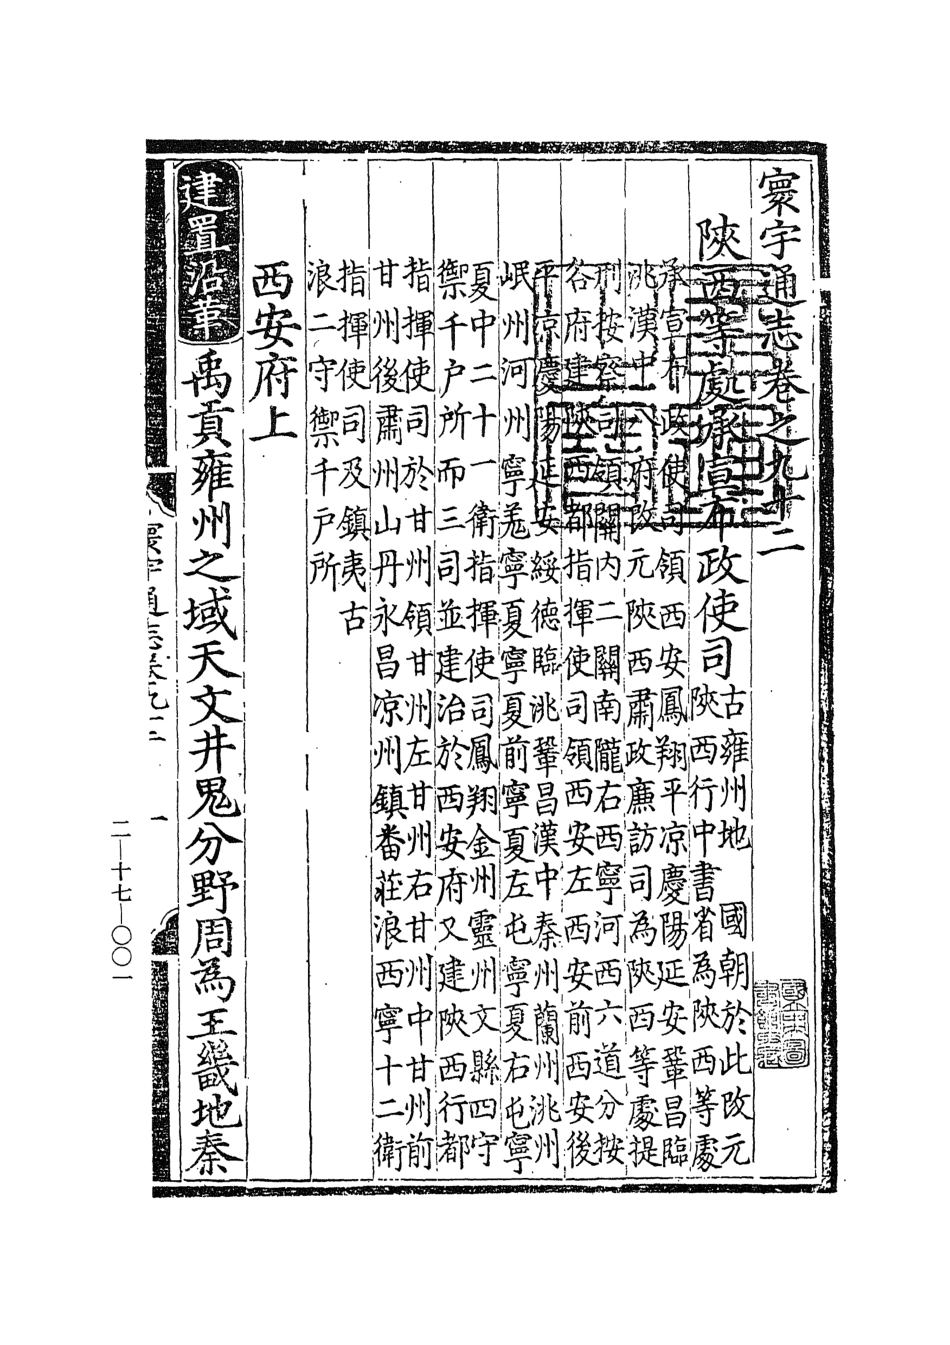 寰宇通志卷之九十二
陝西等處承宣布政使司
古雍州地　國朝於此改元
陝西行中書省為陝西等處
承宣布政使司領西安鳳翔平凉慶陽延安鞏昌臨
洮漢中八府改元陝西肅政廉訪司為陝西等處提
刑按察司領關内二關南隴右西寧河西六道分按
各府建陝西都指揮使司領西安左西安前西安後
平凉慶陽延安綏德臨洮鞏昌漢中秦州蘭州洮州
岷州河州寧羌寧夏寧夏前寧夏左屯寧夏右屯寧
夏中二十一衛指揮使司鳳翔金州靈州文縣四守
禦千戶所而三司並建治於西安府又建陝西行都
指揮使司於甘州領甘州左甘州右甘州中甘州前
甘州後肅州山丹永昌凉州鎮番莊浪西寧十二衛
指揮使司及鎮夷古
浪二守禦千戶所
西安府上
建置沿革
禹貢雍州之域天文井鬼分野周為王畿地秦
寰宇通志卷九十二
一
二—十七—〇〇一